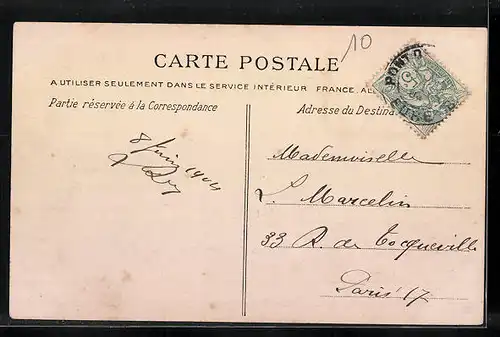 10
CARTE POSTALE
A UTILISER SEULEMENT DANS LE SERVICE INTÉRIEUR FRANCE. AL
Partie réservée à la Correspondance
Adresse du Destina
PONT D
8 Juin 1904
Mademoiselle
L. Marcelin
33 R. de Tocqueville
Paris 17